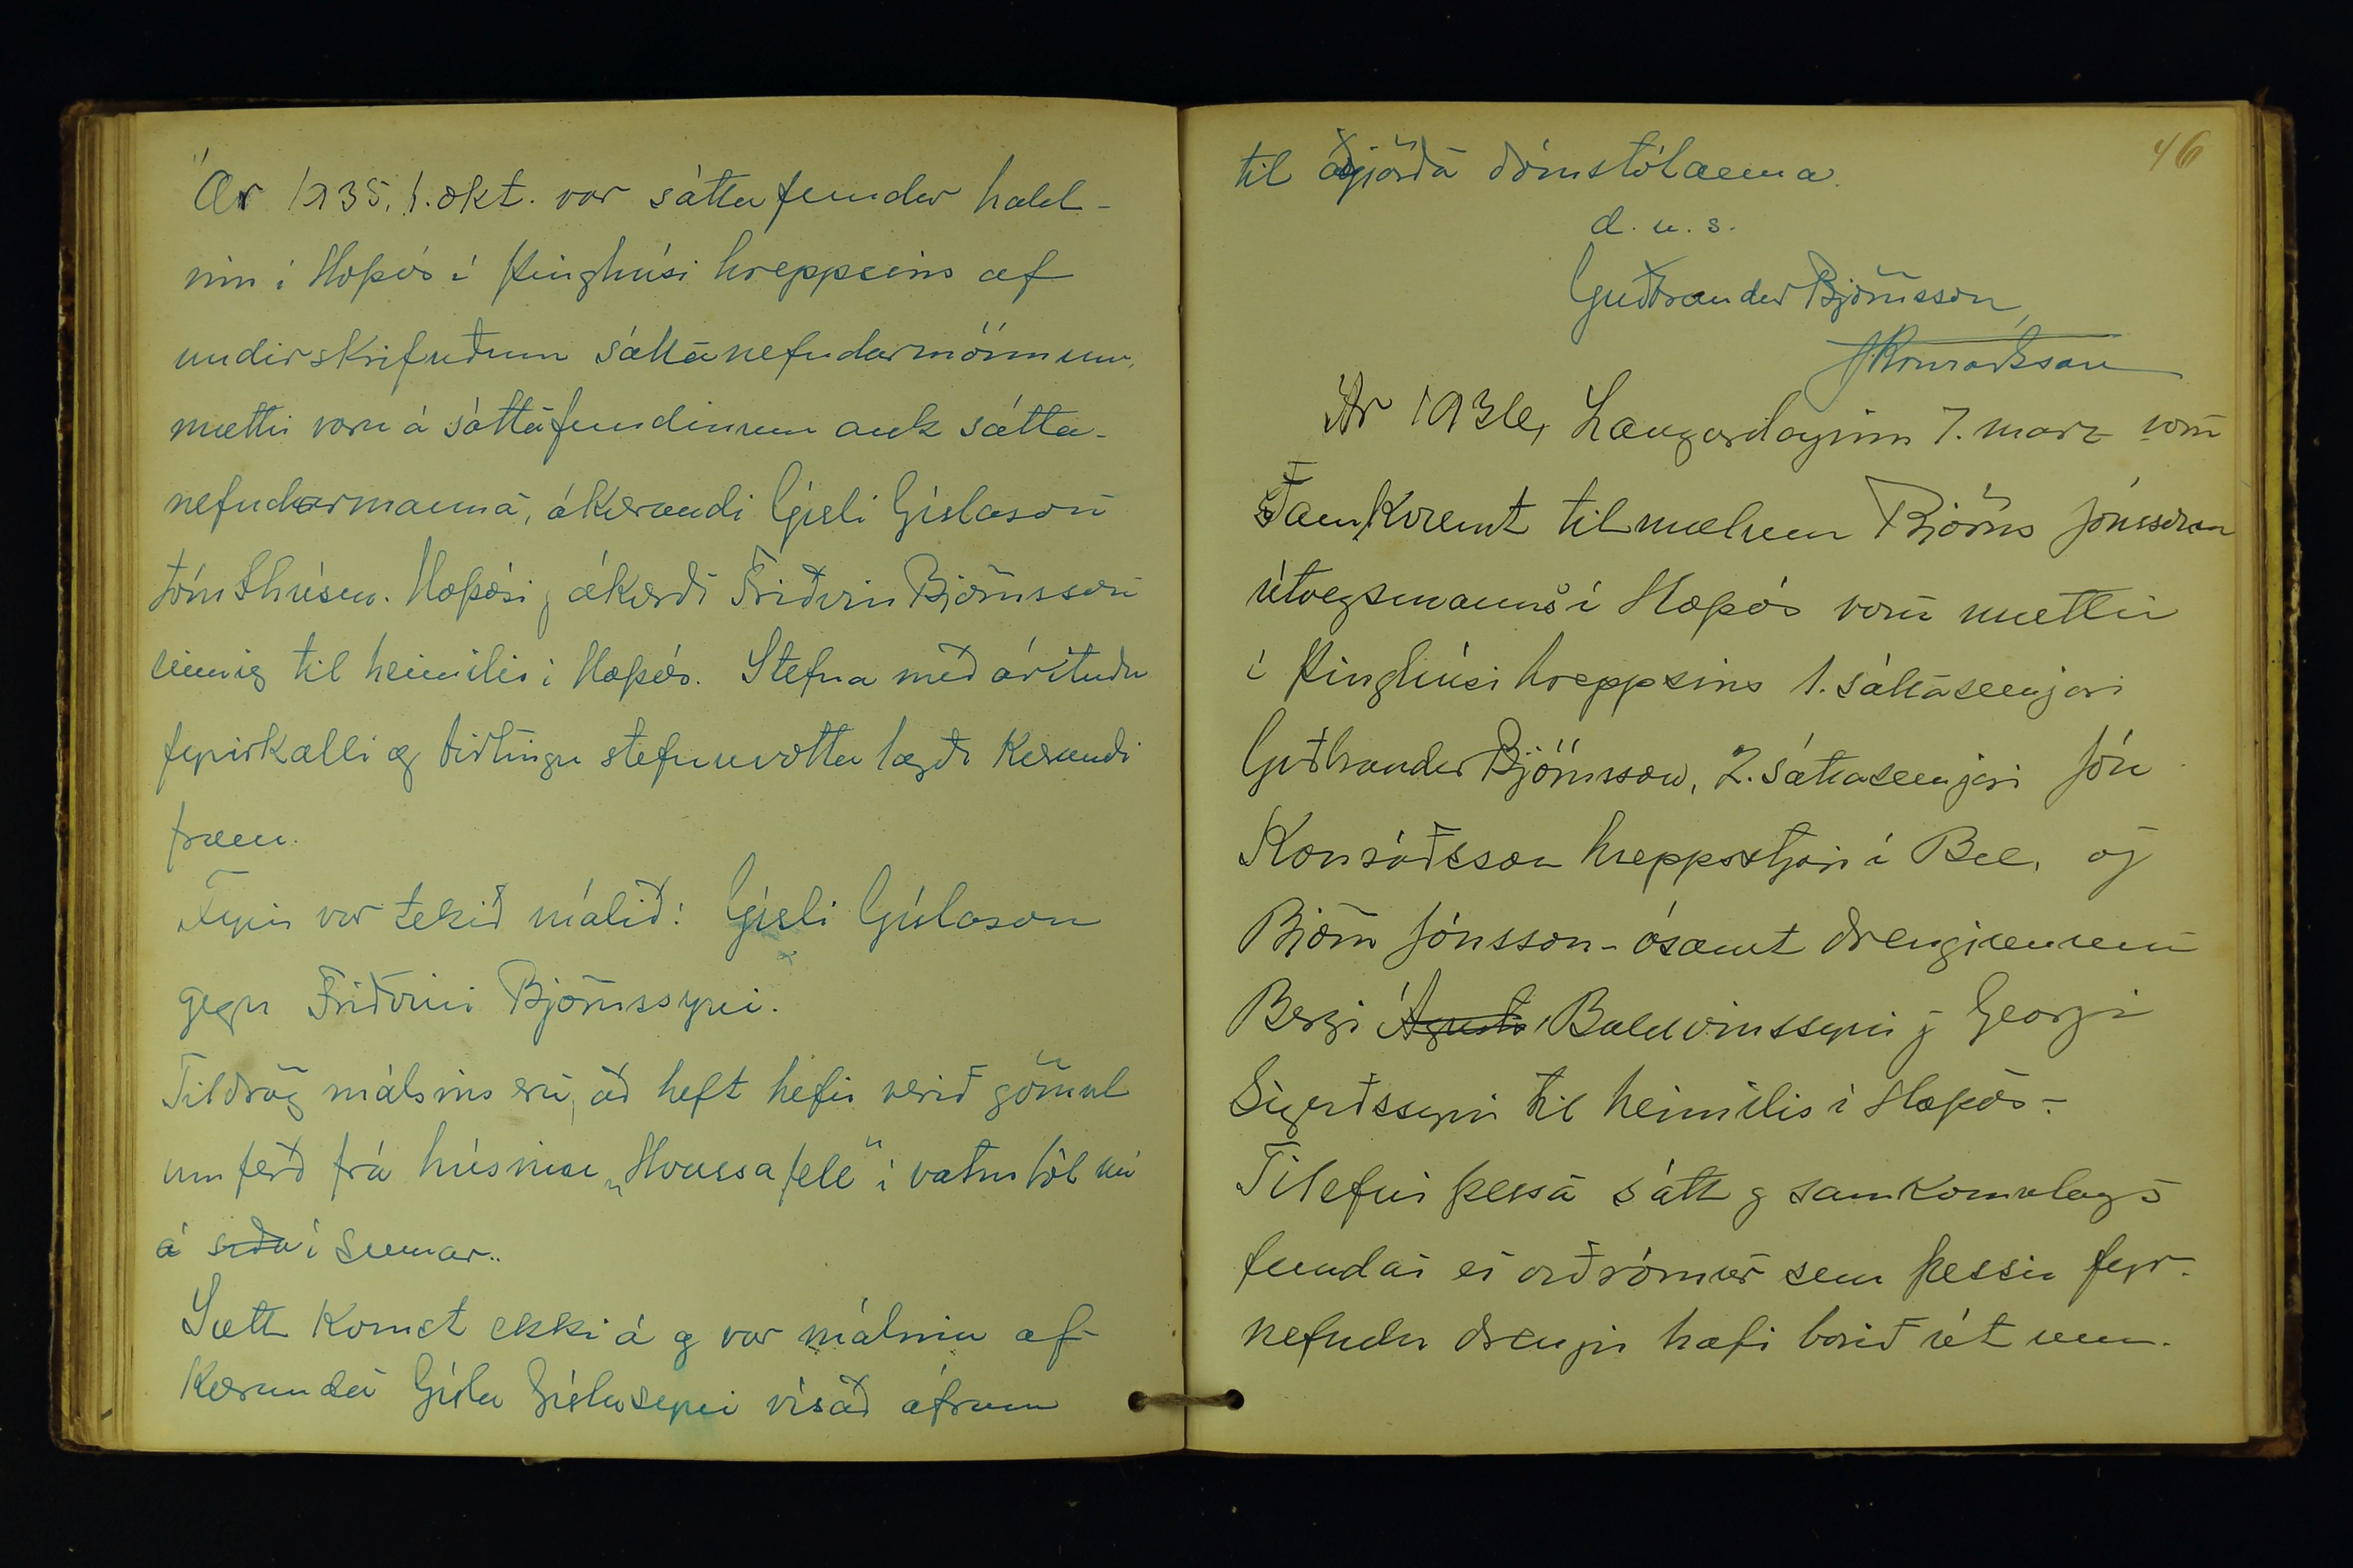 Ár 1935, 1. okt. var sáttafundur hald-
inn í Hofsós í þinghúsi hreppsins af
undirskrifuðum sáttanefndarmönnum,
mættir voru á sáttafundinum auk sátta-
nefndarmanna, ákærandi Gísli Gíslason
tómthúsm. Hofsósi, ákærði Friðvin Björnsson
einnig til heimilis í Hofsós. Stefna með árituðu
fyrirkalli og birtingu stefnuvotta lagði kærandi
fram.
Fyrir var tekið málið: Gísli Gíslason
gegn Friðvini Björnssyni.
Tildrög málsins eru, að heft hefir verið gömul
umferð frá húsinu „Hvassafell" í vatnsból nú
á síðu í sumar.
Sætt komst ekki á og var málinu af
kæranda Gísla Gíslasyni vísað áfram
46
til aðgjörða dómstólanna.
d. u. s.
Guðbrandur Björnsson,
J Konráðsson
Ár 1936, Laugardaginn 7. marz vom
Samkvæmt tilmælum Björns Jónssonar
útvegsmanns í Hofsós voru mættir
í þinghúsi hreppsins 1. sáttasemjari
Guðbrandur Björnsson, 2. sáttasemjari Jón
Konráðsson hreppstjóri í Bæ, og
Björn Jónsson - ásamt drengjunum
Bergi Ágústs Baldvinssyni og Georgi
Sigurðssyni til heimilis í Hofsós -
Tilefni þessa sátt og samkomulags
fundar er orðrómur sem þessir fyr-
nefndu drengir hafi borið út um